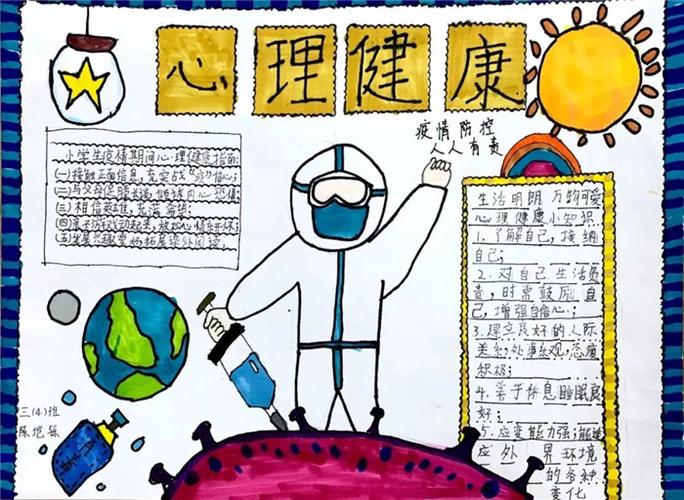 心理健康
疫情防控
人人有责
小学生疫情期间心理健康指南:
(一)接触正面信息,充实战“疫”信心;
(二)与父母促膝长谈,
(三)相信英雄,充满希望;
(四)亲子游戏动起来,放松心情乐开怀;
(五)发展兴趣爱好拓展课外阅读;
生活明朗 万物可爱
心理健康小知识
1.了解自己,接纳
自己;
2.对自己生活负
责,时常鼓励自
己,增强自信心;
3.建立良好的人际
关系,处事乐观,态度
积极;
4.善于休息睡眠良
好;
5.应变能力强;能适
应外界环境
的各种
变化
三(4)班